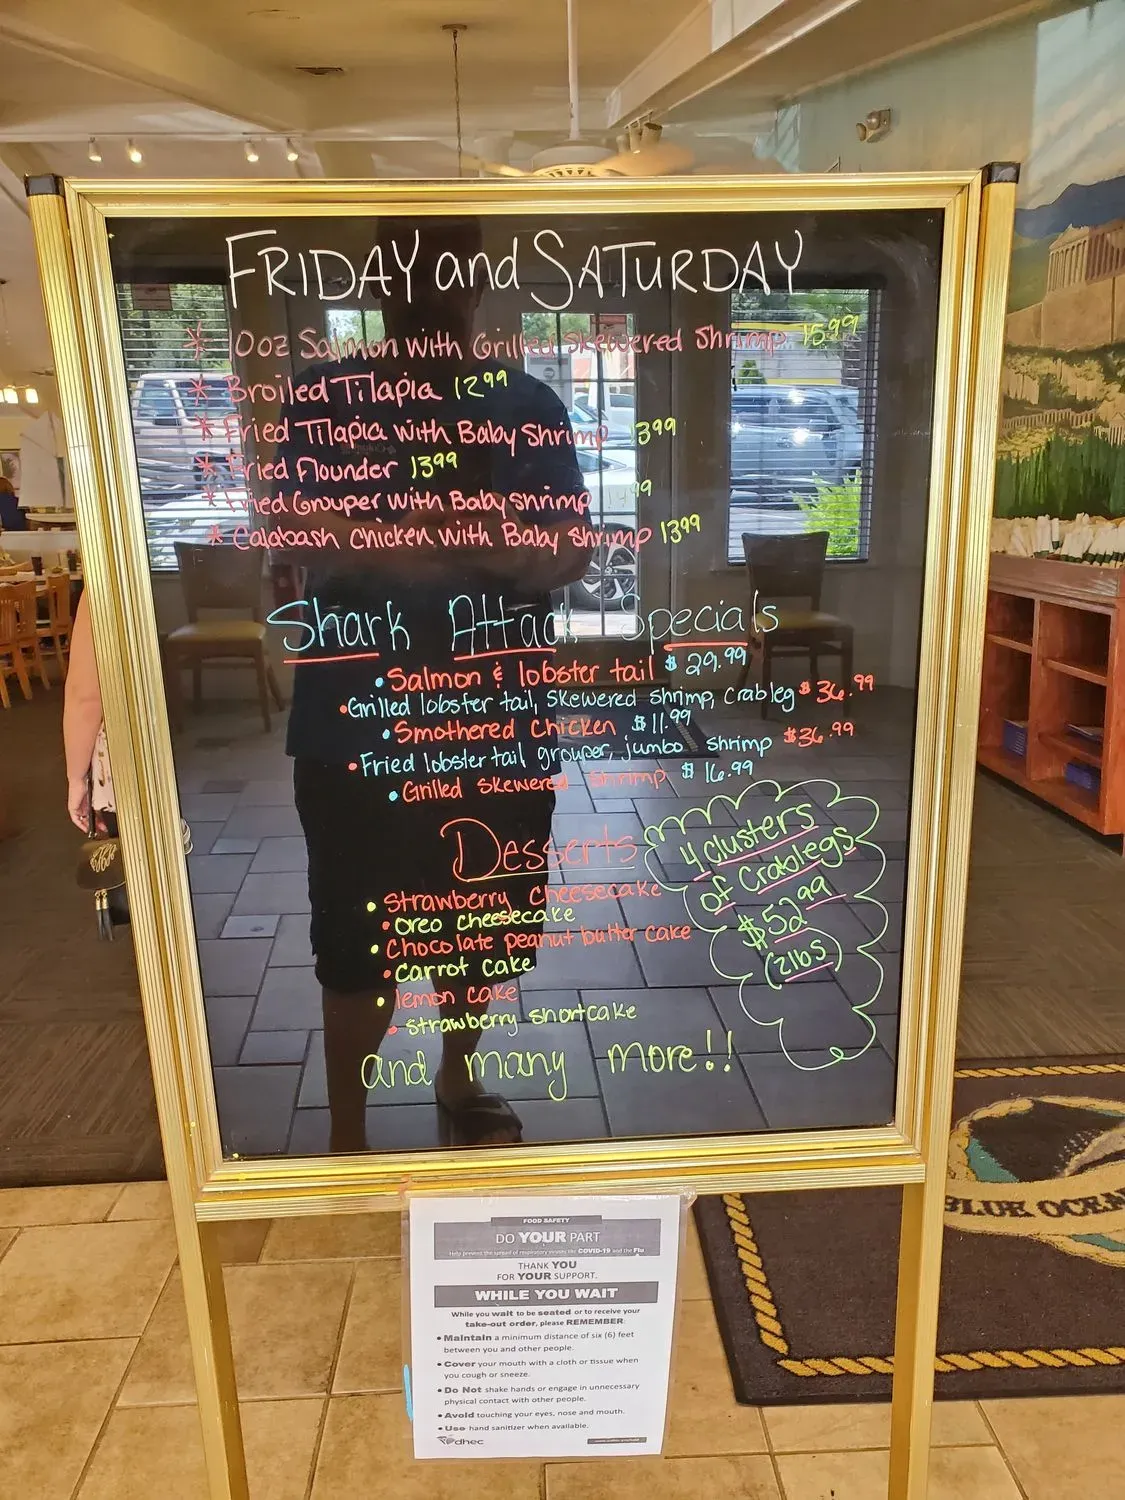 FRIDAY and SATURDAY
* 10oz Salmon with Grilled Skewered Shrimp 15.99
* Broiled Tilapia 1299
* Fried Tilapia with Baby Shrimp 1399
* Fried Flounder 1399
* Fried Grouper with Baby shrimp 1499
* Calabash chicken with Baby shrimp 1399
Shark Attack Specials
• Salmon & lobster tail $29.99
• Grilled lobster tail, skewered shrimp, crableg $36.99
• Smothered Chicken $11.99
• Fried lobster tail grouper, jumbo shrimp $36.99
• Grilled skewered shrimp $16.99
Desserts
• Strawberry cheesecake
• oreo cheesecake
• chocolate peanut butter cake
• carrot cake
• lemon cake
• strawberry shortcake
and many more!!
4 clusters
of Crablegs
$5299
(2lbs)
FOOD SAFETY
DO YOUR PART
Help prevent the spread of respiratory viruses like COVID-19 and the Flu
THANK YOU
FOR YOUR SUPPORT.
WHILE YOU WAIT
While you wait to be seated or to receive your
take-out order, please REMEMBER:
• Maintain a minimum distance of six (6) feet
between you and other people.
• Cover your mouth with a cloth or tissue when
you cough or sneeze.
• Do Not shake hands or engage in unnecessary
physical contact with other people.
• Avoid touching your eyes, nose and mouth.
• Use hand sanitizer when available.
dhec
BLUE OCEA